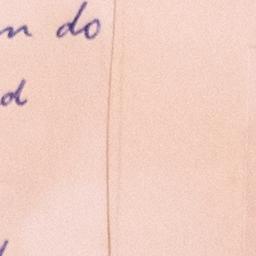 n do
d